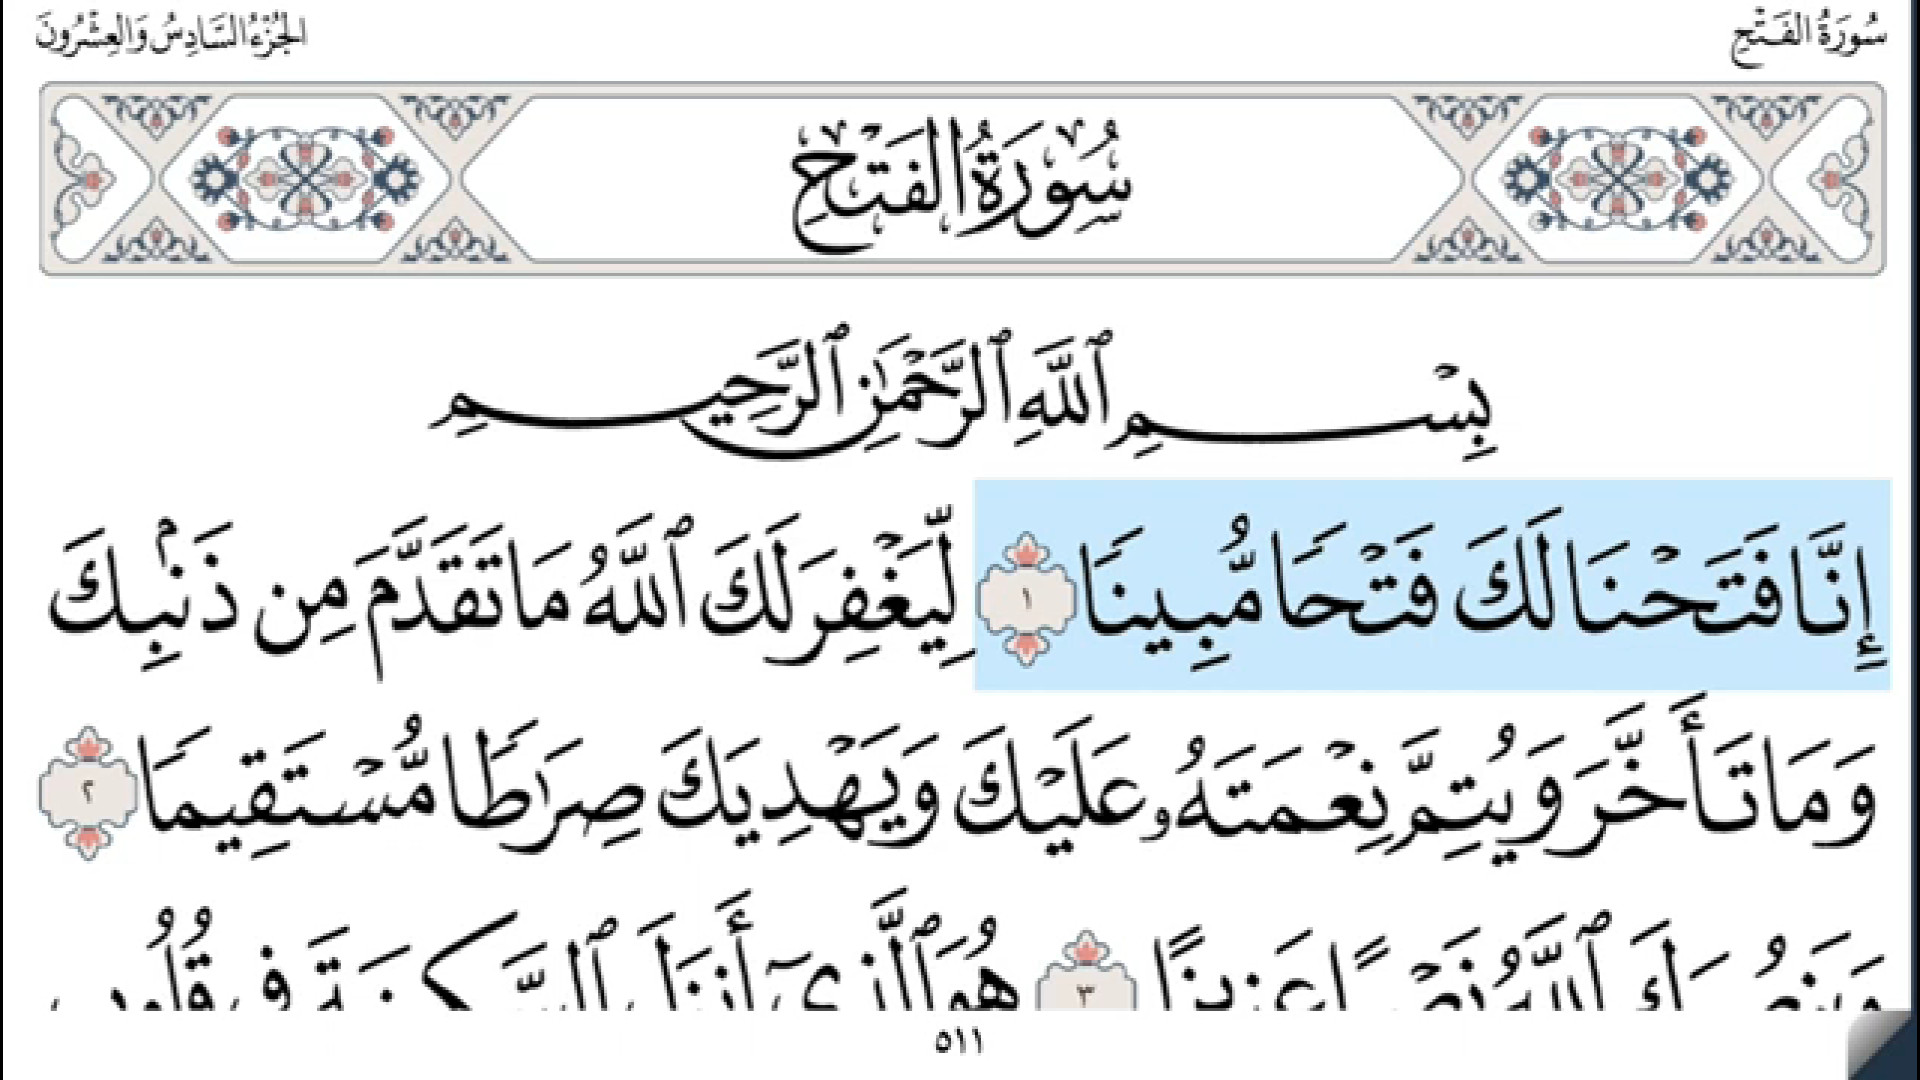 سُورَةُ الفَتْحِ
الجُزْءُ السَّادِسُ وَالعِشْرُونَ
سُورَةُ الفَتْحِ
بِسْمِ ٱللَّهِ ٱلرَّحْمَٰنِ ٱلرَّحِيمِ
إِنَّا فَتَحْنَا لَكَ فَتْحًا مُّبِينًا ١ لِّيَغْفِرَ لَكَ ٱللَّهُ مَا تَقَدَّمَ مِن ذَنۢبِكَ
وَمَا تَأَخَّرَ وَيُتِمَّ نِعْمَتَهُۥ عَلَيْكَ وَيَهْدِيَكَ صِرَٰطًا مُّسْتَقِيمًا ٢
وَيَنصُرَكَ ٱللَّهُ نَصْرًا عَزِيزًا ٣ هُوَ ٱلَّذِىٓ أَنزَلَ ٱلسَّكِينَةَ فِى قُلُوبِ
٥١١